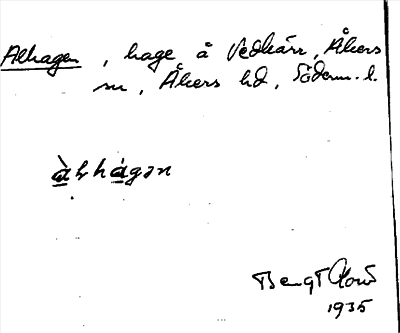 Alhagen, hage å Vedkärr, Åkers
sn, Åkers hd, Söderm. l.
àlhágən
Bengt
1935